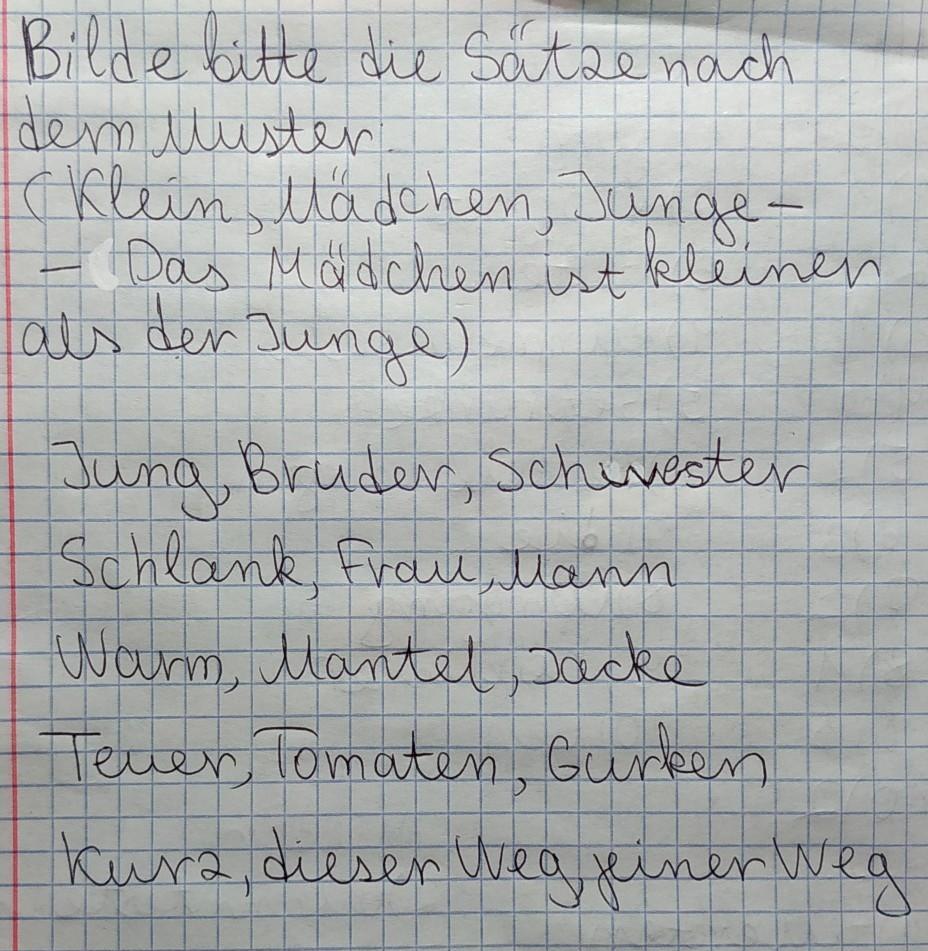 Bilde bitte die Sätze nach
dem Muster:
(Klein, Mädchen, Junge –
– Das Mädchen ist kleiner
als der Junge)
Jung, Bruder, Schwester
Schlank, Frau, Mann
Warm, Mantel, Jacke
Teuer, Tomaten, Gurken
Kurz, dieser Weg, jener Weg